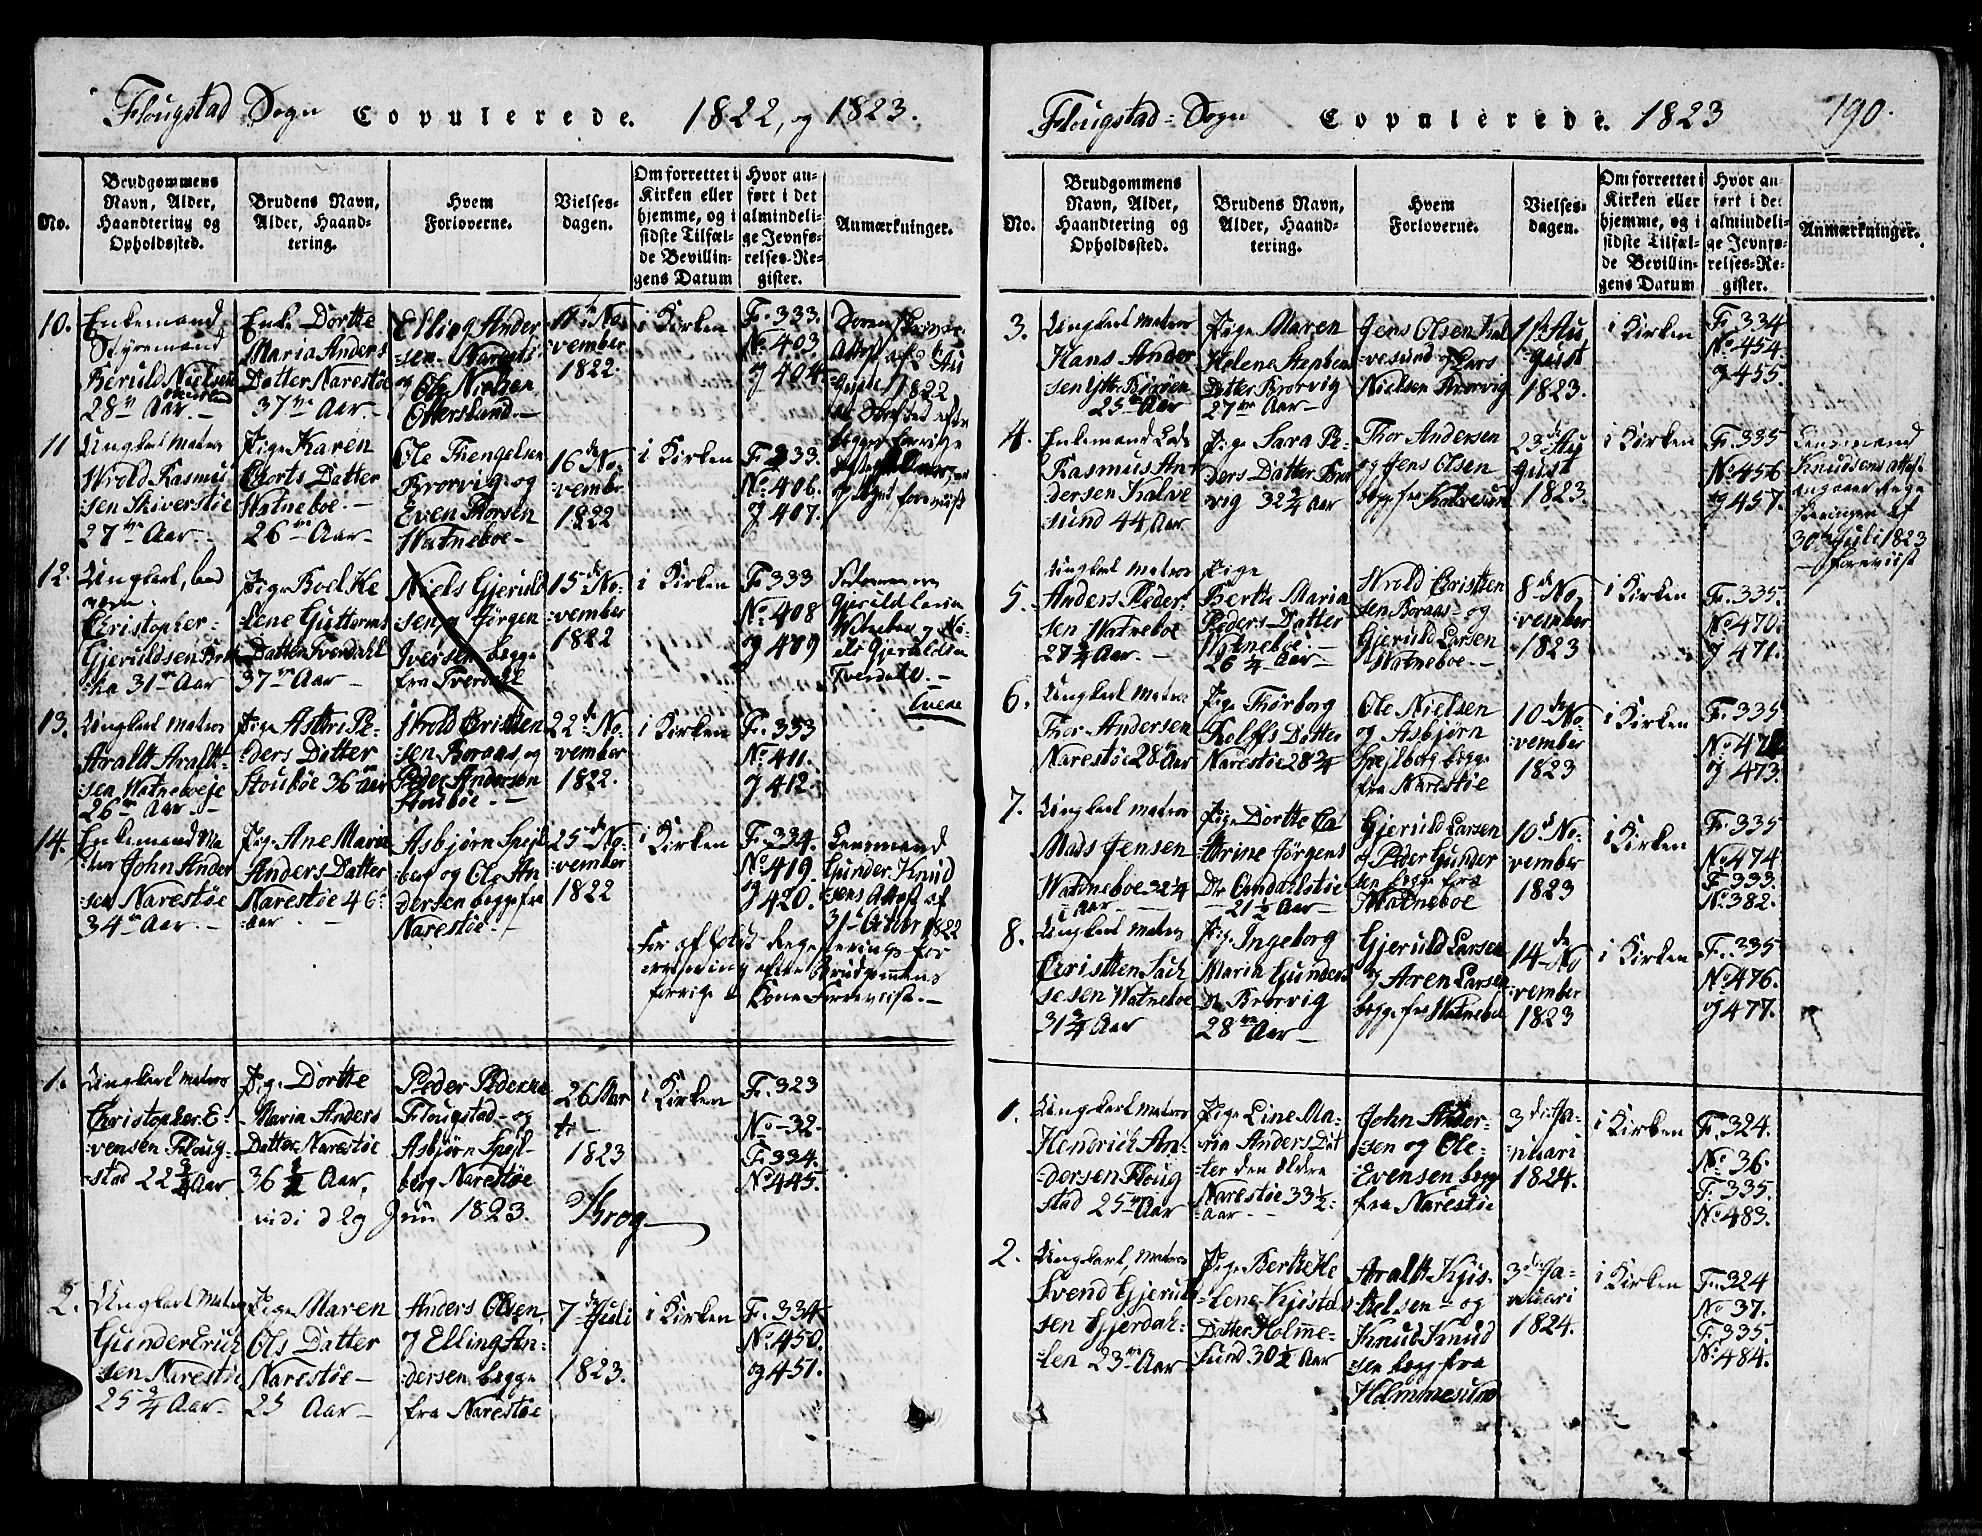 Flougstad Sogn Copulerede. 1822, og 1823.
No.
Brudgommens
Navn, Alder,
Haandtering og
Opholdssted.
Brudens Navn,
Alder, Haand-
tering.
Hvem
Forloverne.
Vielses-
dagen.
Om forrettet i
Kirken eller
hjemme, og i
sidste Tilfæl-
de Bevillin-
gens Datum
Hvor an-
ført i det
almindeli-
ge Jevnfø-
relses-Re-
gister.
Anmærkninger.
10.
Enkemand
Styremand
Beruld Nielsen
28 Aar.-
Enke Dortte
Maria Anders
Datter Narestøe
37 Aar-
Elling Ander
sen Narestø
og Ole Nielsen
Otterslund.-
11 No
vember
1822.
i Kirken
F. 333.
No. 403
og 404
1822
11
Ungkarl Matros
Wrold Rasmus
sen Skiverstøe
27 Aar.-
Pige Karen
Tjorts Datter
Watneboe.-
26 Aar-
Ole Thengelsen
Brorvig og
Even Thorsen
Watneboe-
16 No-
vember
1822
i Kirken
F. 333.
No. 406.
og 407.
12.
Ungkarl,
Christopher-
Gjeruldsen
31 Aar
Pige Boel He
lene Guttorms
Datter Tverdahl
37 Aar-
Niels Gjeruld
sen og Jørgen
Iversen begge
fra Tverdahl
15 No-
vember
1822
i Kirken
F. 333
No. 408
og 409
Gjeruld Larsen
Watneboe og Ni-
els Gjeruldsen
Tverdahl.-
13.
Ungkarl Matros
Aralt Aralt-
sen Watneboeje
26 Aar.-
Pige Asttri Pe-
ders Datter
Stouboe 36 aar
Wrold Christten
sen Boraas og
Peder Andersen
Stouboe.-
22 No-
vember
1822.
i Kirken
F. 333
No. 411.
og 412.
14.
Enkemand Ma
tros John Ander
sen Narestøe
34 Aar.-
Pige Ane Maria
Anders Datter
Narestøe 46
aar.-
Asbjørn Spejl
berg og Ole An
dersen begge fra
Narestøe.-
25 No-
vember
1822
i Kirken
F. 334.
No. 419.
og 420.
Lensmand
Gunder Knud
sens Attest af
31 October 1822
1.
Ungkarl Matros
Christopher E-
vensen Floug-
stad 22 3/4 Aar
Pige Dortte
Maria Anders
Datter Narestøe
36 Aar,
Peder Pedersen
Flougstad- og
Asbjørn Spejl-
berg Narestøe
26 Mar
ts-
1823
i Kirken
F. 323
No. 32.
F. 334.
No. 445.
vidi d 29 Juni 1823. Krog
2.
Ungkarl Matros
Gunder Erich
sen Narestøe
25 3/4 Aar.-
Pige Maren
Ols Datter
Narestøe-
25 Aar-
Anders Olsen
og Elling An-
dersen begge
fra Narestøe
7 Juli
1823.
i Kirken
F. 334
No. 450.
og 451.
Flougstad- Sogn Copulerede. 1823 190.
No.
Brudgommens
Navn, Alder,
Haandtering og
Opholdssted.
Brudens Navn,
Alder, Haand-
tering.
Hvem
Forloverne.
Vielses-
dagen.
Om forrettet i
Kirken eller
hjemme, og i
sidste Tilfæl-
de Bevillin-
gens Datum
Hvor an-
ført i det
almindeli-
ge Jevnfø-
relses-Re-
gister.
Anmærkninger.
3.
Ungkarl Matros
Hans Ander
sen Yttr: Børøen
25 Aar
Pige Maren
Helene Stephens
Datter Brorvig
27 Aar-
Jens Olsen Kal
vesund og Lars
Nielsen Brorvig
1 Au
gust
1823.
i Kirken
F. 334
No. 454.
og 455.
4.
Enkemand Lods
Rasmus An
dersen Kalve
sund 44 Aar
Pige Sara Pe-
ders Datter Bror
vig 32 3/4 Aar
Thor Andersen
og Jens Olsen
begge fra Kalvesund
23 Au
gust
1823.
i Kirken
F. 335
No. 456
og 457.
Lensmand
Knudsens Attest
30 Juli 1823
foreviist
5.
Ungkarl Matros
Anders Peder-
sen Watneboe
27 3/4 Aar.-
Pige
Berthe Maria
Peders Datter
Watneboe.-
26 3/4 Aar-
Wrold Christten
sen Boraas- og
Gjeruld Larsen
Watneboe.-
8 No-
vember
1823
i Kirken
F. 335.
No. 470.
og 471.
6.
Ungkarl Matros
Thor Andersen
Narestøe 28 Aar
Pige Thørborg
Rolffs Datter
Narestøe 28 3/4
Ole Nielsen
og Asbjørn
Spejlberg begge
fra Narestøe
10 No-
vember
1823
i Kirken
F. 335
No. 472
og 473.
7.
Ungkarl Matros
Mads Jensen
Watneboe 32 1/4
Aar-
Pige Dortte Ca
thrine Jørgens
Dtr Omdalstøe
21 1/2 Aar-
Gjeruld Larsen
og Peder Gunder
sen begge fra
Watneboe
10 No-
vember
1823
i Kirken
F. 335
No. 474
F. 333.
No. 382.
8.
Ungkarl Matros
Christten Isach
sesen Watneboe
31 3/4 Aar
Pige Ingeborg
Maria Gunders
Dtr Brorvig
28 Aar-
Gjeruld Larsen
og Aren Larsen
begge fra Watneboe
14 No
vember
1823
i Kirken
F. 335
No. 476.
og 477.
1.
Ungkarl Matros
Hendrich An-
dersen Floug
stad 25 Aar
Pige Line Ma-
ria Anders Dat
ter den ældre
Narestøe 33 1/2
Aar-
John Ander-
sen og Ole-
Evensen begge
fra Narestøe
3 Ja-
nuari
1824.
i Kirken
F. 324.
No. 36.
F. 335.
No. 483.
2.
Ungkarl Matros
Svend Gjeruld
sen Gjerdal-
len 23 Aar
Pige Berthe He
lene Kjøstel
Datter Holme-
sund 30 1/2 Aar
Aralt Kjøs-
telsen- og
Knud Knud
sen begge fra
Holmmesund
3 Ja-
nuari
1824.
i Kirken
F. 324
No. 37.
F. 335.
No. 484.